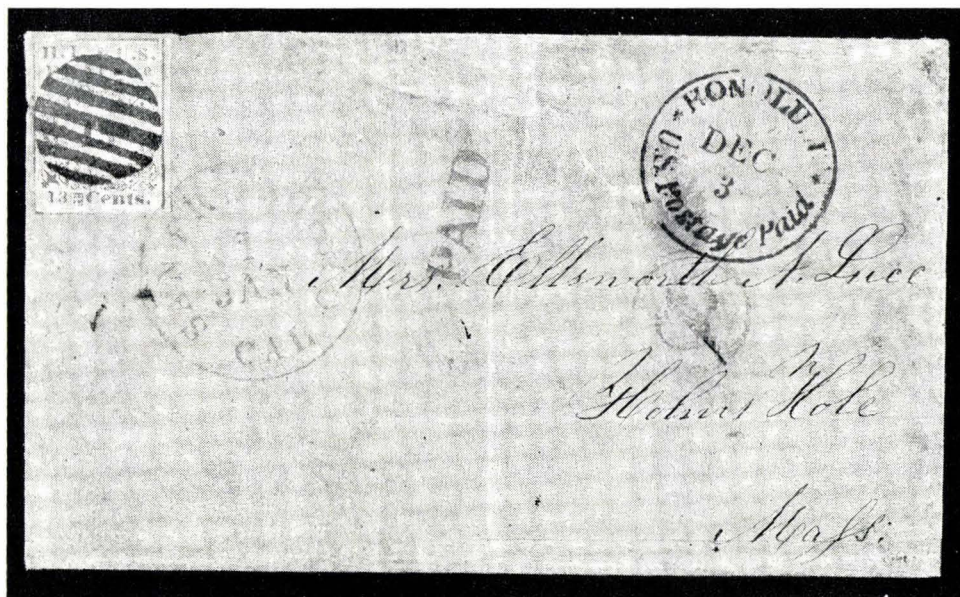 H.I. & U.S.
13 Cents.
PAID
HONOLULU
DEC
3
U.S. Postage Paid
CAL
Mrs. Ellsworth N. Luce
Holms Hole
Mass: